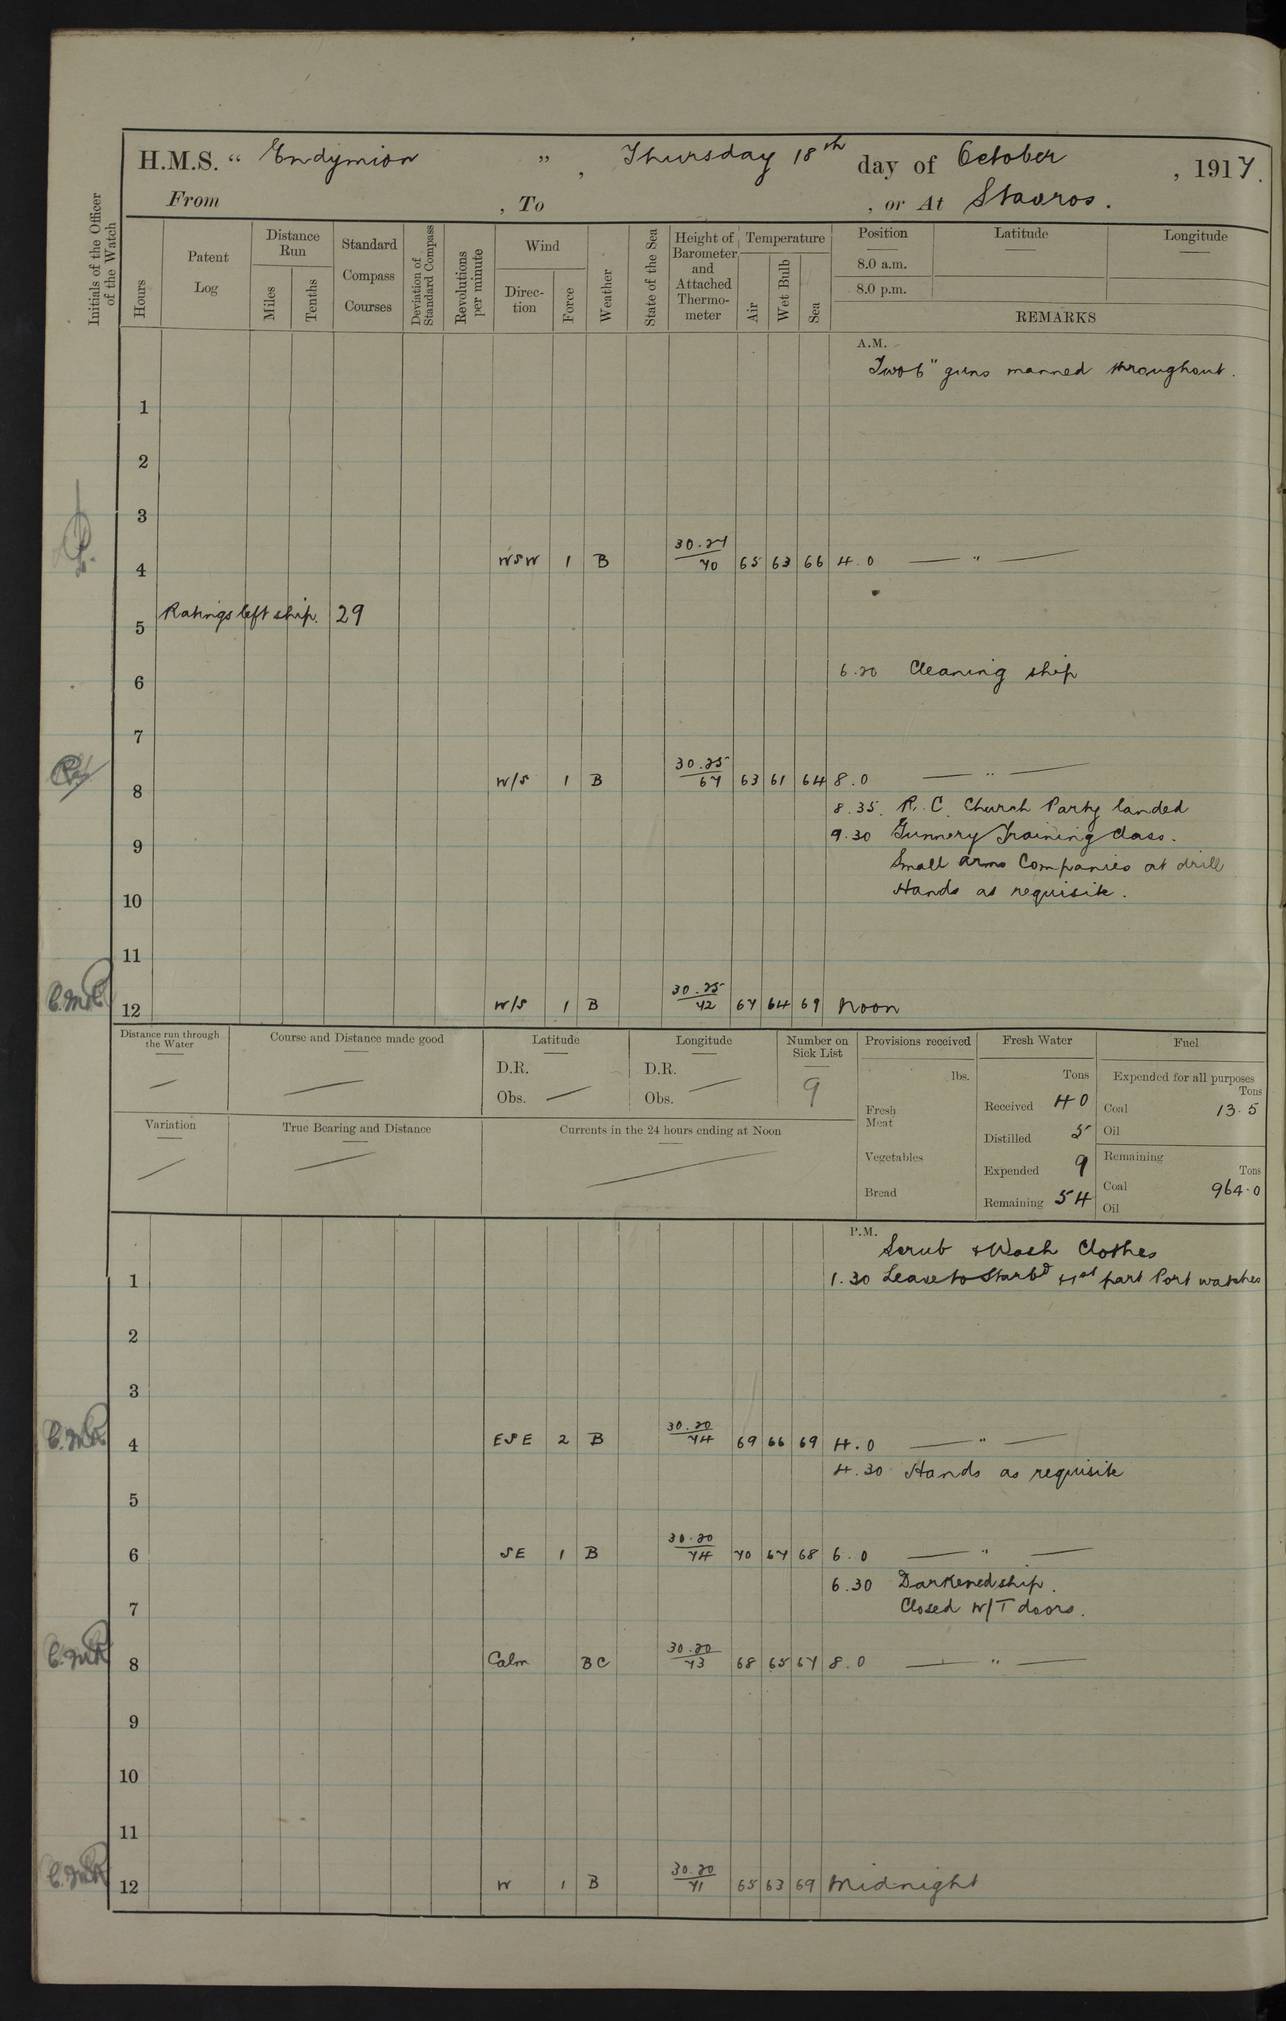 H.M.S. “ Endymion ”, Thursday 18th day of October, 1917.
From , To , or At Stavros.
Initials of the Officer of the Watch
Hours
Patent Log
Distance Run
Miles
Tenths
Standard Compass Courses
Deviation of Standard Compass
Revolutions per minute
Wind
Direction
Force
Weather
State of the Sea
Height of Barometer and Attached Thermometer
Temperature
Air
Wet Bulb
Sea
Position
8.0 a.m.
8.0 p.m.
Latitude
Longitude
REMARKS
A.M.
Two 6" guns manned throughout.
1
2
3
4 WSW 1 B 30.27 70 65 63 66 4.0 — " —
5 Ratings left ship. 29
6 6.20 Cleaning ship
7
8 W/S 1 B 30.25 67 63 61 64 8.0 — " —
8.35. R.C. Church Party landed
9 9.30 Gunnery Training Class.
Small arms Companies at drill
10 Hands as requisite.
11
C.M.R. 12 W/S 1 B 30.25 72 67 64 69 Noon
Distance run through the Water —
Course and Distance made good —
Latitude
D.R.
Obs. —
Longitude
D.R. —
Obs.
Number on Sick List
9
Provisions received
lbs.
Fresh Meat
Vegetables
Bread
Fresh Water
Tons
Received 40
Distilled 5
Expended 9
Remaining 54
Fuel
Expended for all purposes
Tons
Coal 13.5
Oil
Remaining
Tons
Coal 964.0
Oil
Variation —
True Bearing and Distance —
Currents in the 24 hours ending at Noon —
P.M.
Scrub & Wash Clothes
1 1.30 Leave to Starbd & 1st part Port watches
2
3
C.M.R. 4 ESE 2 B 30.20 74 69 66 69 4.0 — " —
4.30 Hands as requisite
5
6 SE 1 B 30.20 74 70 67 68 6.0 — " —
6.30 Darkened ship.
7 Closed W/T doors.
C.M.R. 8 Calm BC 30.20 73 68 65 67 8.0 — " —
9
10
11
C.M.R. 12 W 1 B 30.20 71 65 63 69 Midnight